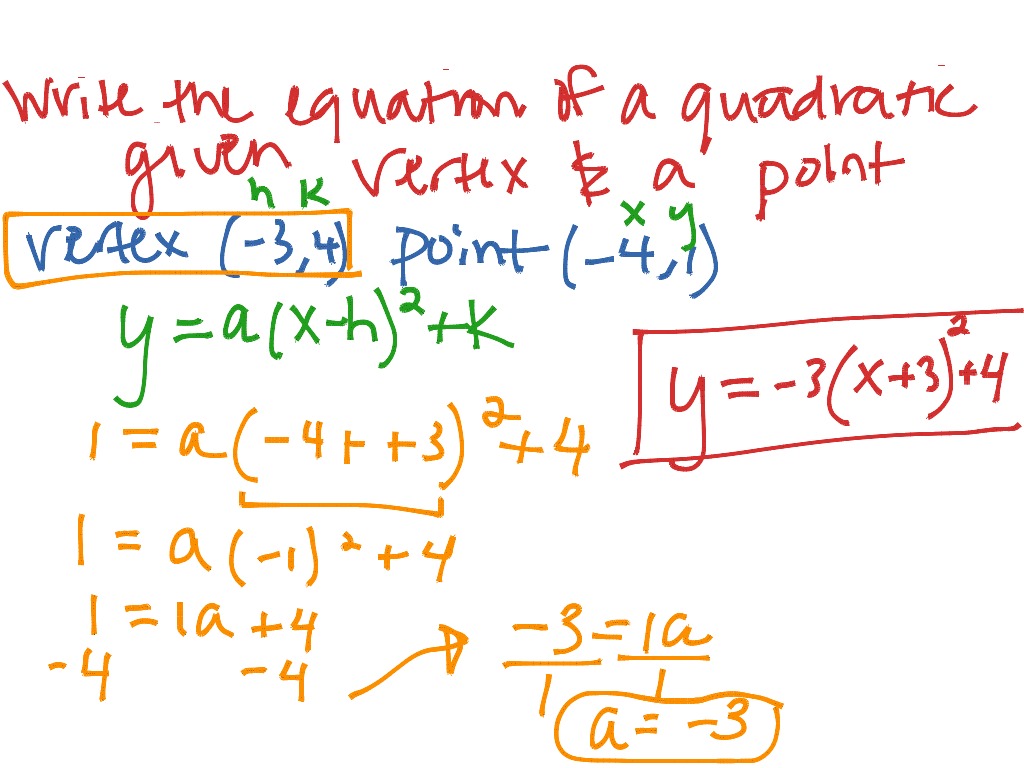 write the equation of a quadratic
given vertex & a point
h k
x y
vertex (-3,4) point (-4,1)
y = a(x-h)²+k
y = -3(x+3)²+4
1 = a(-4++3)²+4
1 = a(-1)²+4
1 = 1a +4
-4 -4
-3=1a
1 1
a= -3